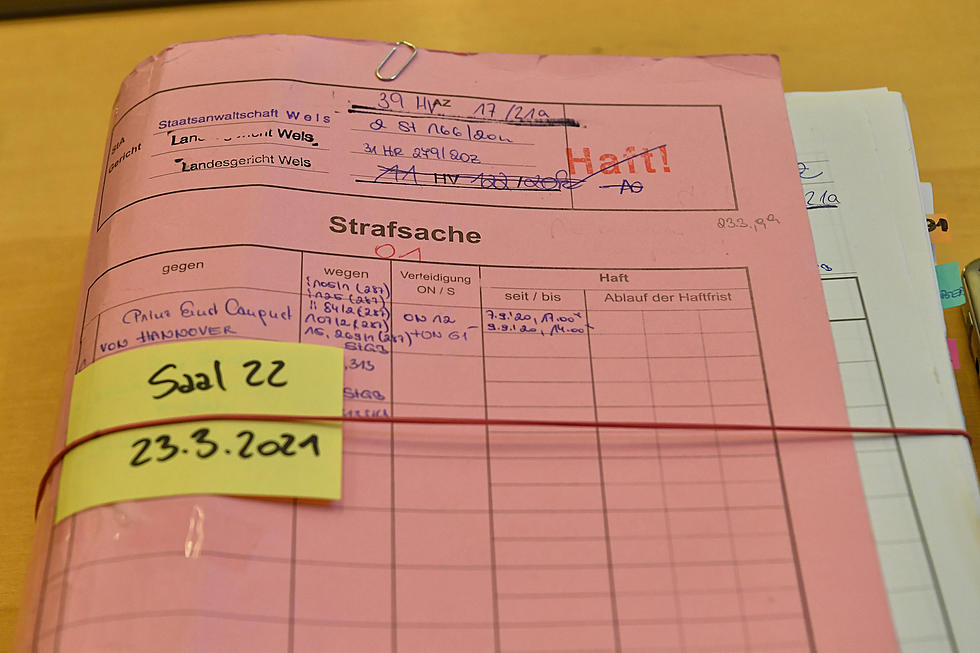 39 HV AZ 17/21a
StA
Gericht
Staatsanwaltschaft Wels
2 St 166/20
Landesgericht Wels
31 HR 279/20z
Landesgericht Wels
11 HV 122/20
Haft!
AG
23.3.
Strafsache
01
gegen
wegen
Verteidigung
ON / S
Haft
seit / bis
Ablauf der Haftfrist
(Prinz Ernst August
VON HANNOVER
§ 105/1 (287)
§ 125 (287)
§§ 84/2 (287)
107/2 (287)
15, 269/1 (287)
StGB
ON 12
+ON 61
7.9.'20, 17.00
9.9.'20, 14.00
,313
StGB
Saal 22
23.3.2021
21a